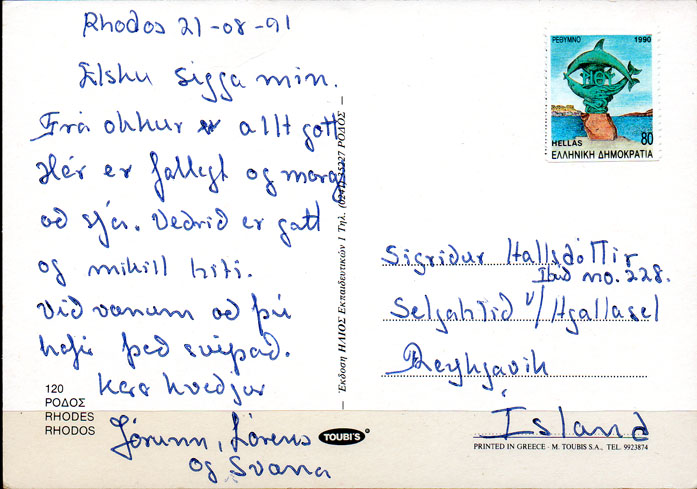 Rhodos 21-08-91
Elsku Sigga mín.
Frá okkur er allt gott
Hér er fallegt og margt
að sjá. Veðrið er gott
og mikill hiti.
Við vonum að þú
hafir það svipað.
Kærar kveðjur
Jórunn, Lórens
og Svana
120
ΡΟΔΟΣ
RHODES
RHODOS
TOUBI'S
Εκδοση ΗΛΙΟΣ Εκπαιδευτικών 1 Τηλ. (0241) 35227 ΡΟΔΟΣ
ΡΕΘΥΜΝΟ 1990
80
HELLAS
ΕΛΛΗΝΙΚΗ ΔΗΜΟΚΡΑΤΙΑ
Sigríður Hallsdóttir
Íbúð no. 228.
Seljahlíð v/Hjallasel
Reykjavík
Ísland
PRINTED IN GREECE · M. TOUBIS S.A., TEL. 9923874